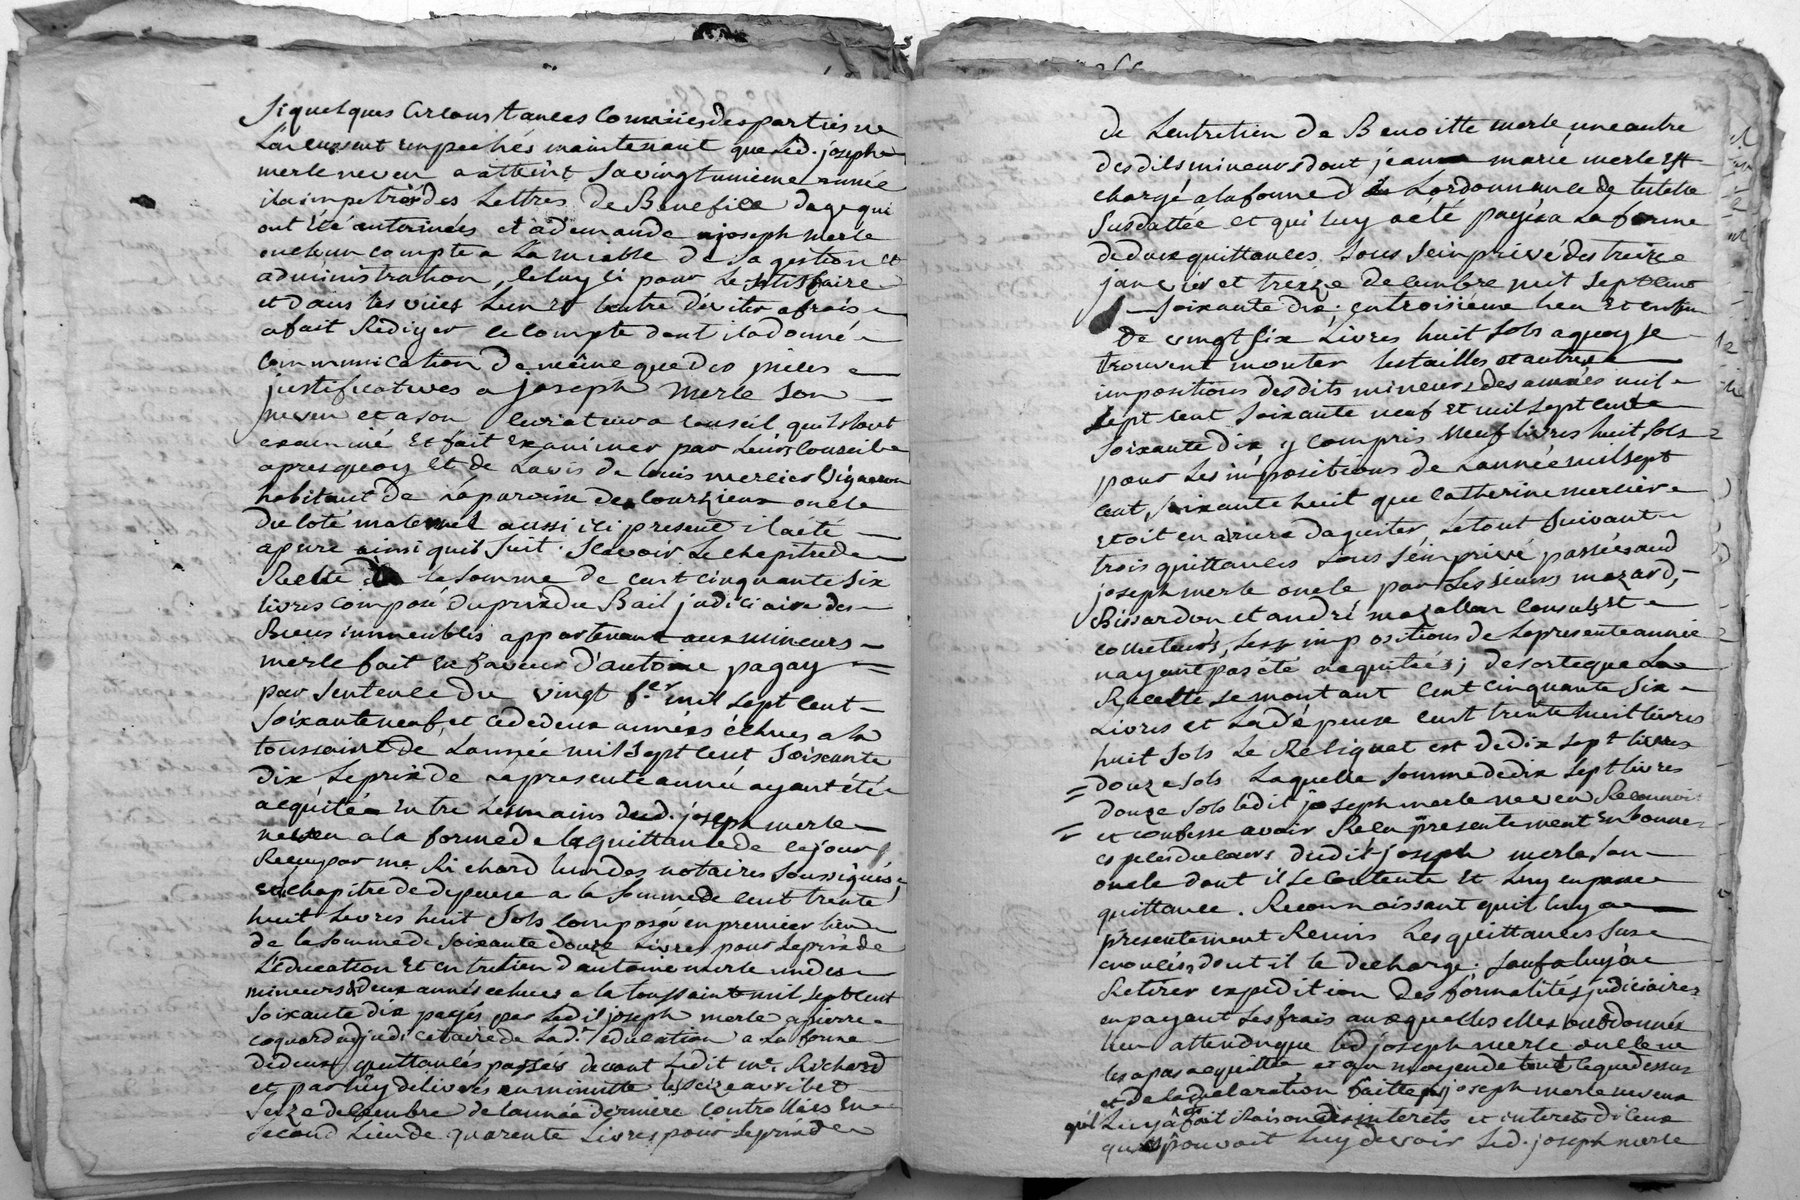 Si quelques circonstances connües des parties ne
l'en eussent empechés maintenant que led. joseph
merle neveu a atteint sa vingtunieme année
il a impetrér des Lettres de Benefice dage qui
ont été anterinées et a demandé a joseph merle
oncle un compte a Lamiable de sa gestion et
administration, celuy ci pour le satisfaire
et dans les vües lun et lautre déviter afrais
a fait Rediger le compte dont il a donné
communication de même que des pieces
justificatives a joseph Merle son
neveu et a son curateur a conseil quils l'ont
examiné Et fait Examiner par Leurs Conseil
apres quoy Et de Lavis de louis mercier Vigneron
habitant de La paroisse de Courzieux oncle
du coté maternel aussi ici present il a été
apuré ainsi quil suit. Scavoir Le chapitre de
Recette la somme de cent cinquante six
livres composé du prix du Bail judiciaire des
Biens immeubles appartenant aux mineurs
merle fait en faveur d'antoine pagay
par sentence du vingt f.er mil sept cent
soixante neuf, et ce de deux années échues a la
toussaint de Lannée mil sept cent soixante
dix Le prix de la presente année ayant été
acquitée Entre Les mains dud. joseph merle
neveu a la forme de la quittance de ce jour
Recu par me Richard lun des notaires soussignés,
Et chapitre de depense a la somme de cent trente
huit Livres huit sols composé en premier lieu
de la somme de soixante douze Livres pour Le prix de
L'éducation Et entretien d'antoine merle un des
mineurs de deux années echues a la toussaint mil sept cent
soixante dix payés par Ledit joseph merle a pierre
coquard adjudicataire de Lad.e education a La forme
de deux quittances passées devant Ledit me. Richard
et par luy delivrés en minutte les seize avril et
seize decembre de l'année derniere Controllées En
second Lieu de quarente Livres pour Le prix de
de Lentretien de Benoitte merle une autre
desdits mineurs dont jean marie merle Est
chargé a la forme de Lordonnance de tutelle
susdattée et qui luy a été payés a La forme
de deux quittances sous seinprivé des treize
janvier et treize decembre mil sept cent
soixante dix; en troisieme lieu Et enfin
De vingt six Livres huit sols a quoy se
trouvent monter les tailles et autres
impositions desdits mineurs des années mil
sept cent soixante neuf Et mil sept cent
soixante dix, y compris neuf livres huit sols
pour Les impositions de Lannée mil sept
cent, soixante huit que Catherine mercier
Etoit en arriere daquiter Le tout suivant
trois quittances sous séinprivé passées aud
joseph merle oncle par Les sieurs mazard,
Bissardon et andré mazallon Consuls Et
collecteurs, les impositions de La presente année
nayant pas été acquitées; desorte que La
Recette se montant cent cinquante six
Livres et La dépense cent trente huit livres
huit sols Le Reliquat est de dix sept livres
douze sols Laquelle somme de dix sept livres
douze sols ledit joseph merle neveu Reconnoit
et confesse avoir Recu presentement En bonnes
especes du cours dudit joseph merle son
oncle dont il se Contente Et Luy en passe
quittance. Reconnoissant quil luy a
presentement Remis Les quittances sus
enoncées, dont il le decharge; sauf a luy a
Retirer expédition Des formalités judiciaires
en payant Les frais auxquelles elles ont donnée
lieu attendu que led joseph merle oncle ne
les a pas acquitté, et qu moyen de tout ce que dessus
et de la declaration faitte par joseph merle neveu
qu'il Luy a fait Raison des interets et interets diceux
que pouvoit Luy devoir Led. joseph merle